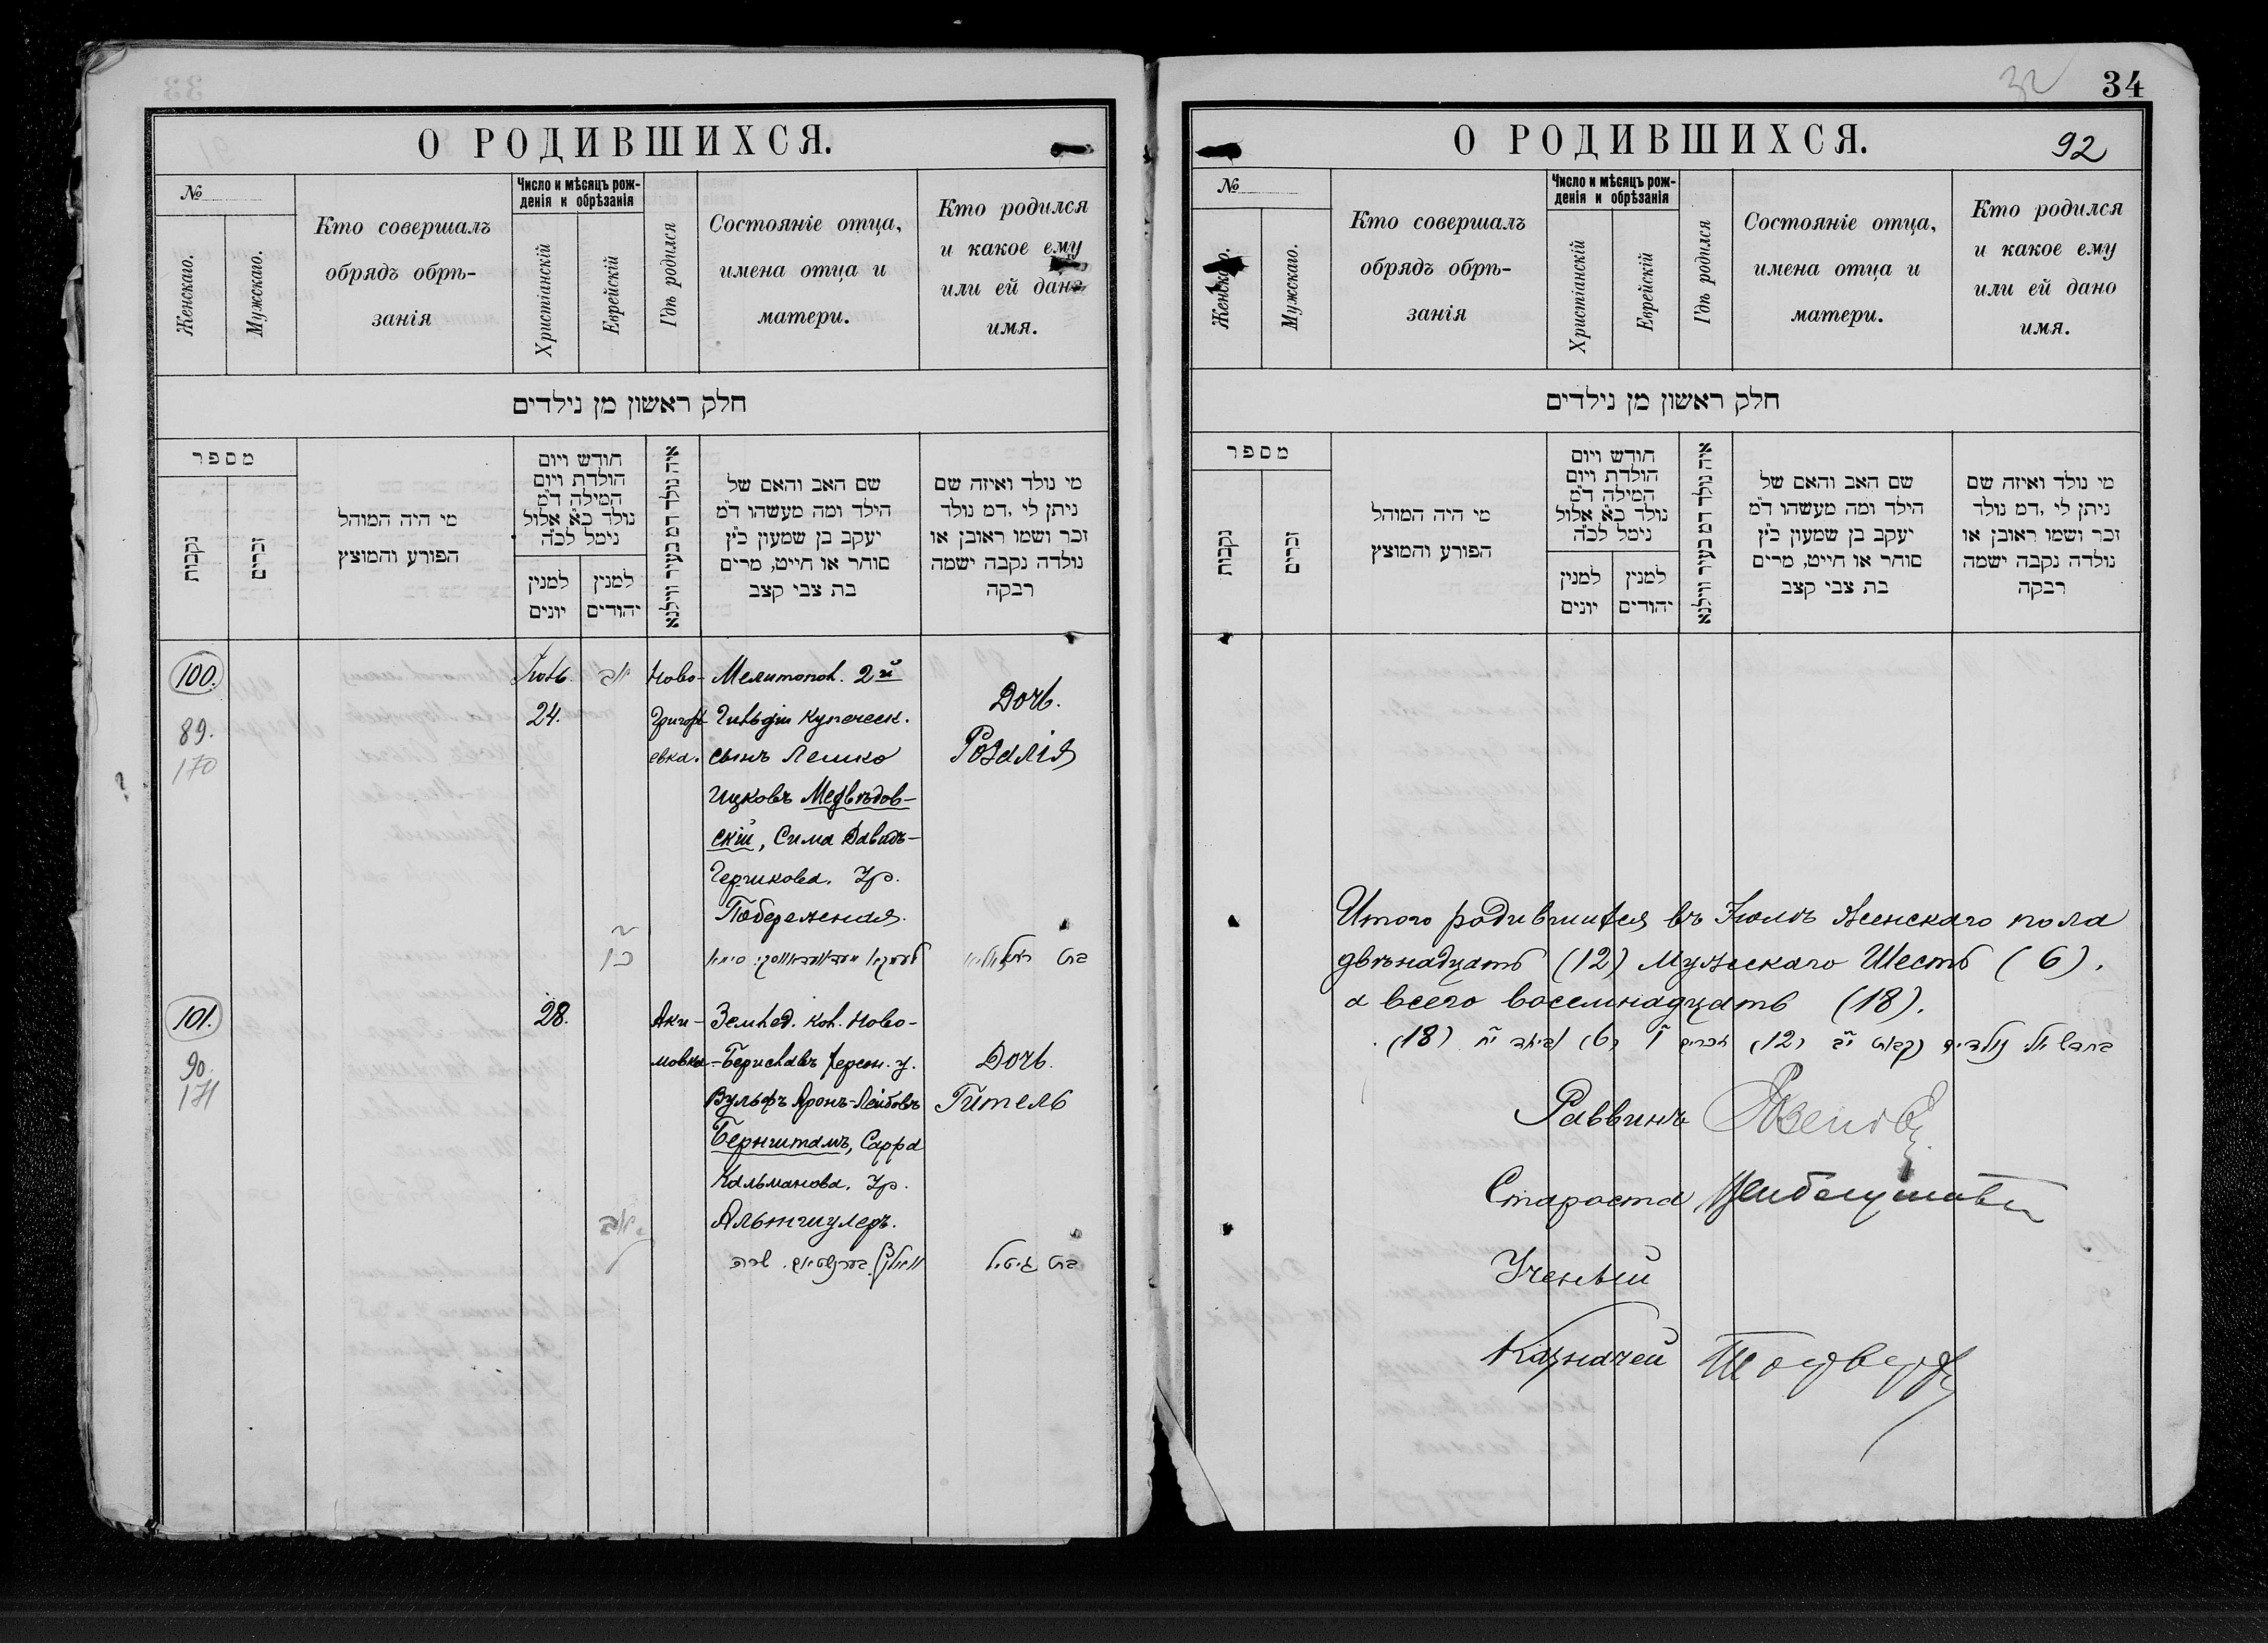 О РОДИВШИХСЯ.
№
Женскаго.
Мужскаго.
Кто совершалъ
обрядъ обрѣ-
занія
Число и мѣсяцъ рож-
денія и обрѣзанія
Христіанскій
Еврейскій
Гдѣ родился
Состояніе отца,
имена отца и
матери.
Кто родился
и какое ему
или ей дано
имя.
חלק ראשון מן נילדים
מספר
נקבות
זכרים
מי היה המוהל
הפורע והמוצץ
חודש ויום
הולדת ויום
המילה ד״מ
נולד כ״א אלול
נימל לכ״ה
למנין
יונים
למנין
יהודים
איה נולד דמ בעיר ווילנא
שם האב והאם של
הילד ומה מעשהו ד״מ
יעקב בן שמעון כ״ץ
סוחר או חייט, מרים
בת צבי קצב
מי נולד ואיזה שם
ניתן לי ,דמ נולד
זכר ושמו ראובן או
נולדה נקבה ישמה
רבקה
100.
89.
170
24.
Ново-
Григорь-
евка.
Мелитопол. 2й
Гильдіи купеческ.
сынъ Лешко
Ицковъ Медвѣдов-
скій, Сима Давидъ-
Герчикова. Ур.
Побережная.
Дочь.
Розалія
בת
101.
90.
171
28.
Аки-
мовка
Землед. кол. Ново-
Бериславъ Херсон. у.
Вульфъ Аронъ-Лейбовъ
Бернштамъ, Сарра
Кальманова. Ур.
Альтшулеръ.
Дочь.
Гитель
שרה
בת גיטיל
34
32
О РОДИВШИХСЯ.
92
№
Женскаго.
Мужскаго.
Кто совершалъ
обрядъ обрѣ-
занія
Число и мѣсяцъ рож-
денія и обрѣзанія
Христіанскій
Еврейскій
Гдѣ родился
Состояніе отца,
имена отца и
матери.
Кто родился
и какое ему
или ей дано
имя.
חלק ראשון מן נילדים
מספר
נקבות
זכרים
מי היה המוהל
הפורע והמוצץ
חודש ויום
הולדת ויום
המילה ד״מ
נולד כ״א אלול
נימל לכ״ה
למנין
יונים
למנין
יהודים
איה נולד דמ בעיר ווילנא
שם האב והאם של
הילד ומה מעשהו ד״מ
יעקב בן שמעון כ״ץ
סוחר או חייט, מרים
בת צבי קצב
מי נולד ואיזה שם
ניתן לי ,דמ נולד
זכר ושמו ראובן או
נולדה נקבה ישמה
רבקה
Итого родившихся въ Іюлѣ женскаго пола
двѣнадцать (12) мужескаго Шесть (6).
а всего восемнадцать (18).
בחדש יולי נולדים נקבות י״ב (12) זכרים ו׳ (6) ביחד י״ח (18).
Раввинъ
Староста
Ученый
Казначей